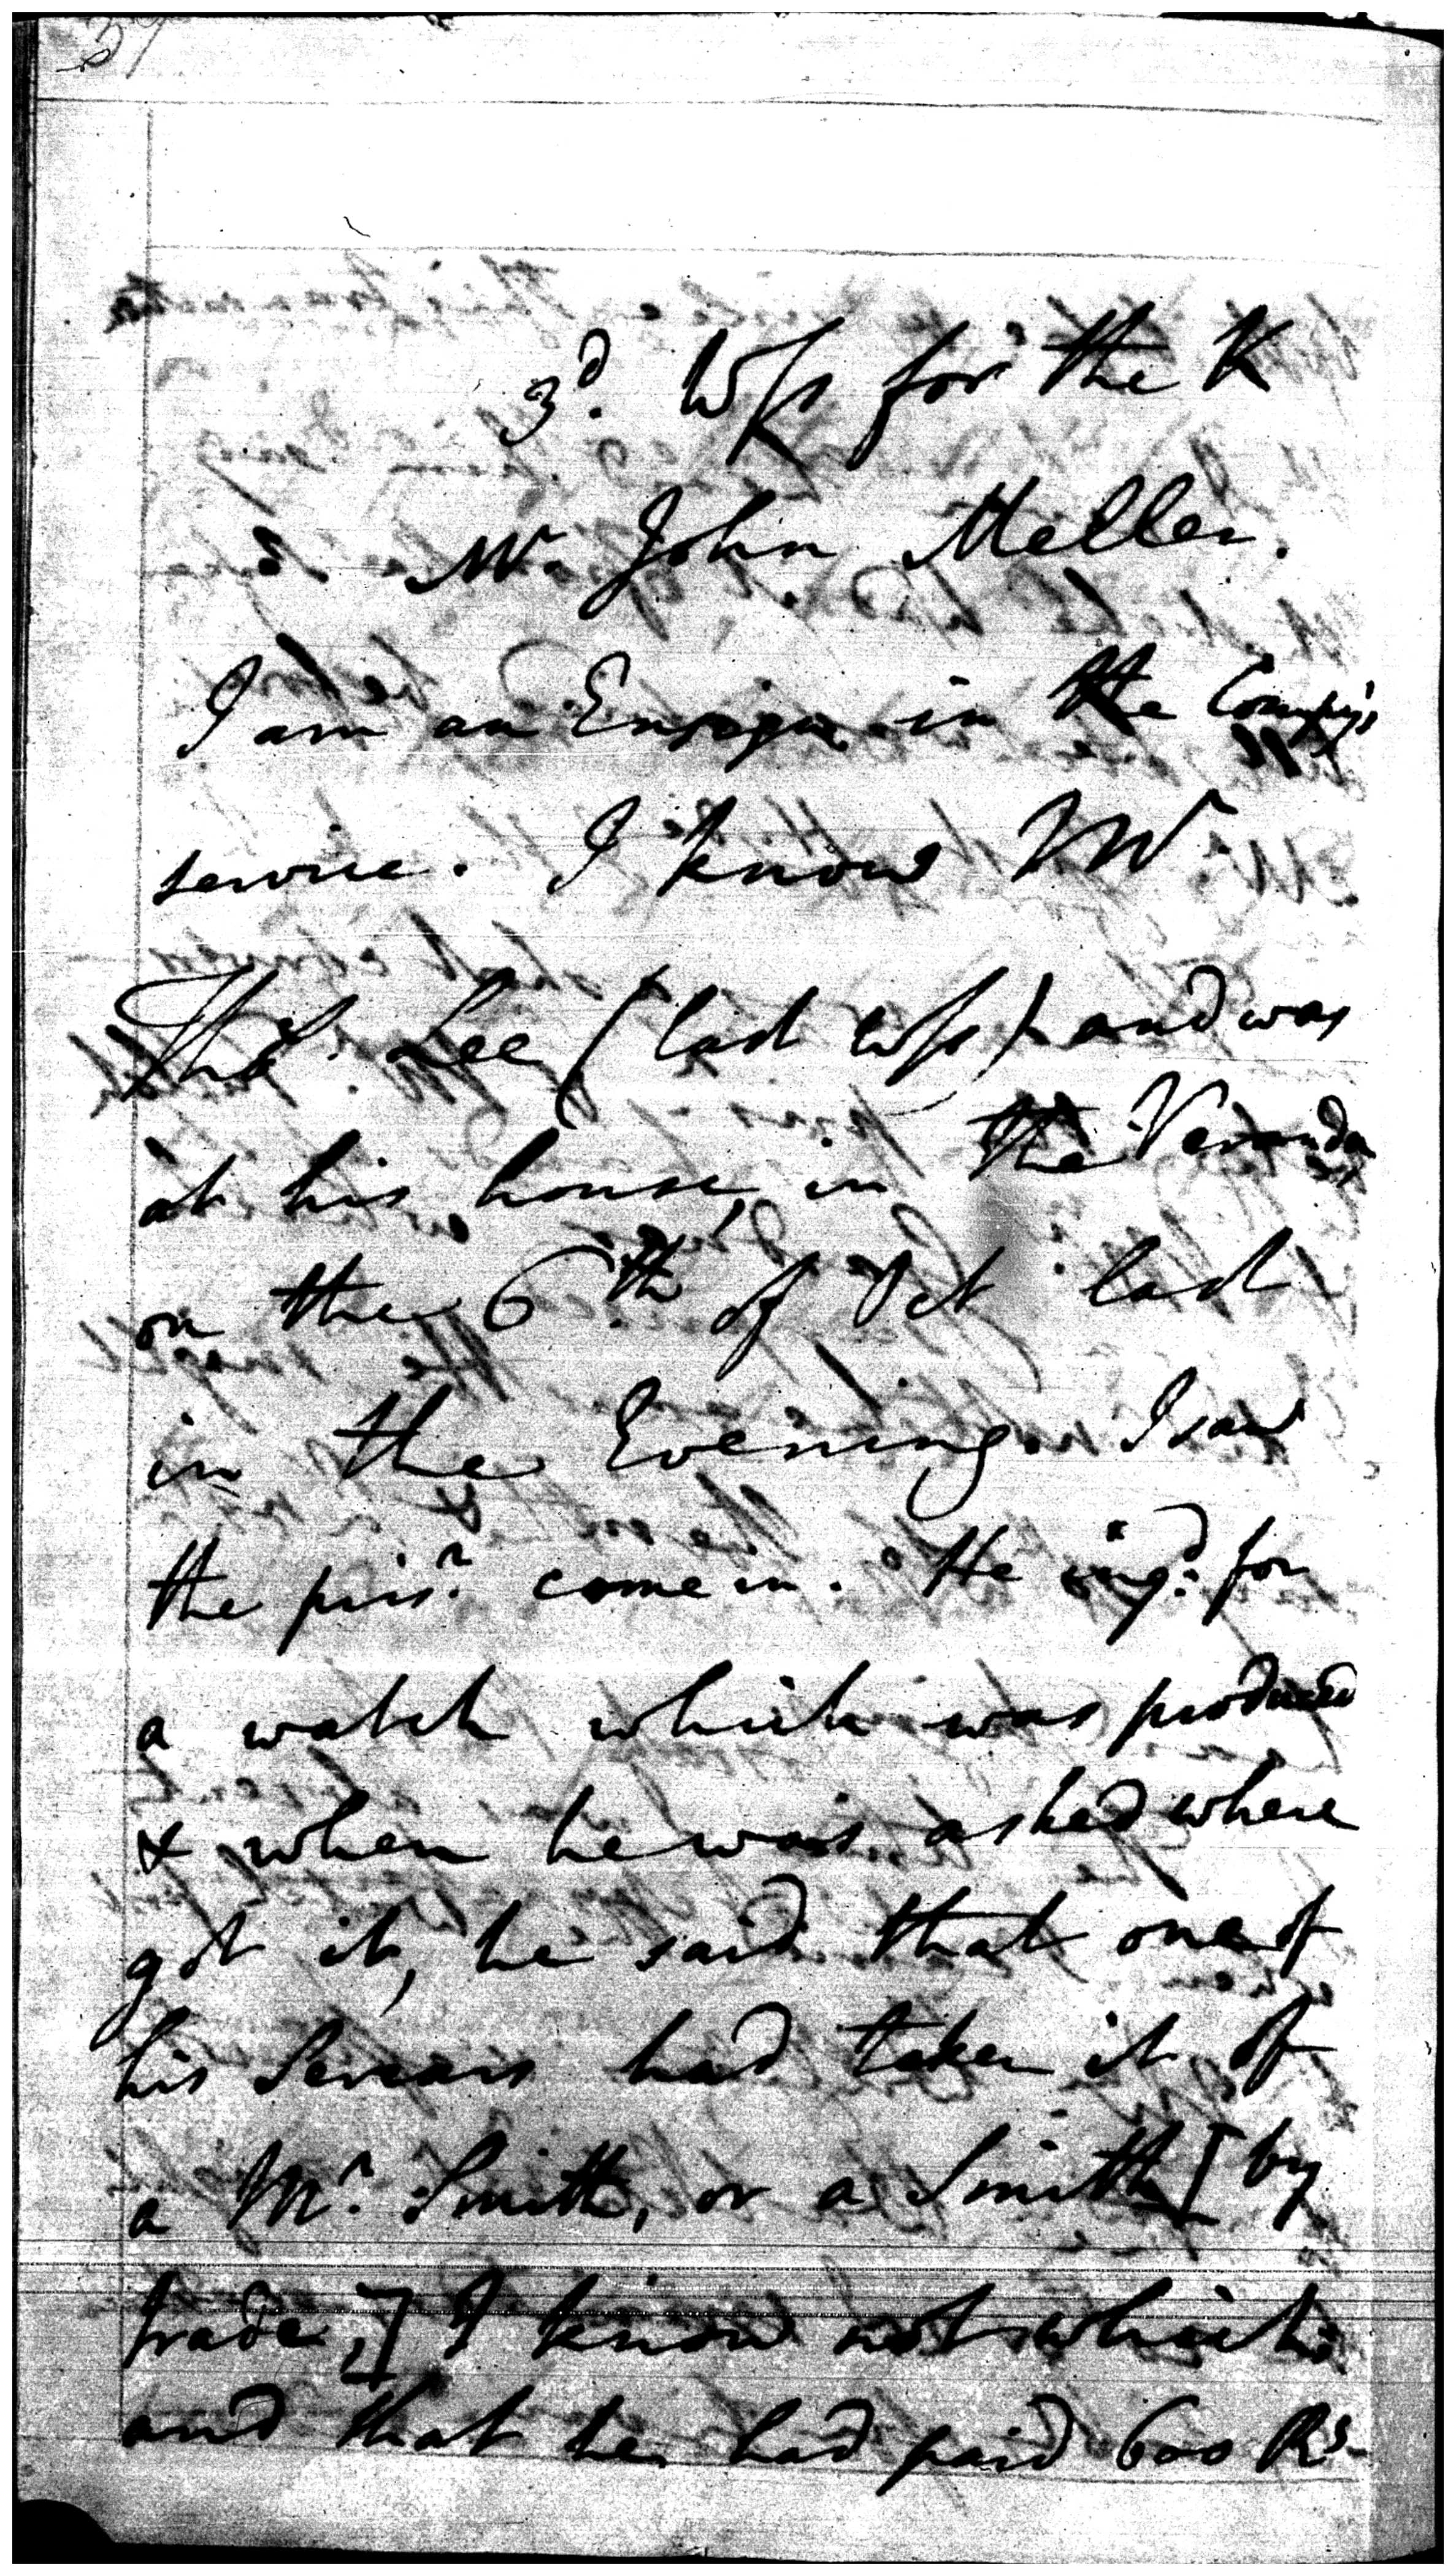 3d. Wss for the K
Mr. John Meller.
I am an Ensign in the Compy's
service. I know Mr
Thos. Lee (last wss) and was
at his house, in the Veranda
on the 6th of Oct last
in the Evening. I saw
the prisr. come in. He inqd. for
a watch which was produced
& when he was asked where
got it, he said that one of
his Sercars had taken it of
a Mr. Smith, or a Smith [by
trade,] I know not which
and that he had paid 600 Rs